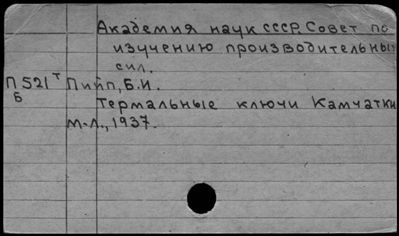 Академия наук СССР. Совет по
изучению производительных
сил.
П521т Пийп, Б.И.
Б
Термальные ключи Камчатки
М.-Л., 1937.